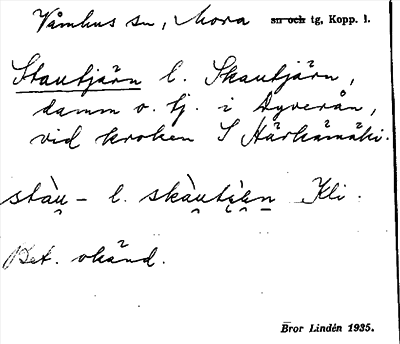 Våmhus sn, Mora ~~sn och~~ tg, Kopp. l.
Stautjärn l. Skautjärn,
damm o. tj. i Dyverån,
vid kroken S Härkämäki.
stàu̯- l. skàu̯tɛ̀ṇ Kli.
Bet. okänd.
Bror Lindén 1935.